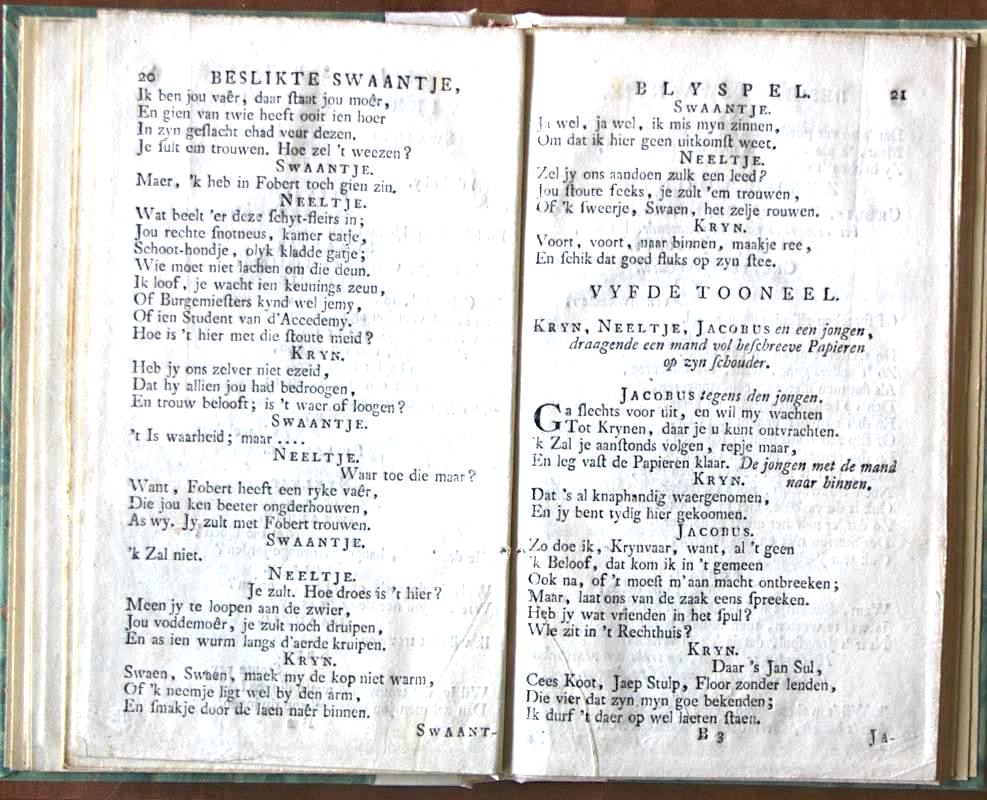 20 BESLIKTE SWAANTJE,
Ik ben jou vaêr, daar ſtaat jou moêr,
En gien van twie heeft ooit ien hoer
In zyn geſlacht ehad veur dezen.
Je ſult em trouwen. Hoe zel 't weezen?
SWAANTJE.
Maer, 'k heb in Fobert toch gien zin.
NEELTJE.
Wat beelt 'er deze ſchyt-fleirs in;
Jou rechte ſnotneus, kamer catje,
Schoot-hondje, olyk kladde gatje;
Wie moet niet lachen om die deun.
Ik loof, je wacht ien keunings zeun,
Of Burgemieſters kynd wel jemy,
Of ien Student van d'Accedemy.
Hoe is 't hier met die ſtoute meid?
KRYN.
Heb jy ons zelver niet ezeid,
Dat hy allien jou had bedroogen,
En trouw belooft; is 't waer of loogen?
SWAANTJE.
't Is waarheid; maar ....
NEELTJE.
Waar toe die maar?
Want, Fobert heeft een ryke vaêr,
Die jou ken beeter ongderhouwen,
As wy. Jy zult met Fobert trouwen.
SWAANTJE.
'k Zal niet.
NEELTJE.
Je zult. Hoe droes is 't hier?
Meen jy te loopen aan de zwier,
Jou voddemoêr, je zult noch druipen,
En as ien wurm langs d'aerde kruipen.
KRYN.
Swaen, Swaen, maek my de kop niet warm,
Of 'k neemje ligt wel by den arm,
En ſmakje door de laen naêr binnen.
SWAANT-
BLYSPEL. 21
SWAANTJE.
Ja wel, ja wel, ik mis myn zinnen,
Om dat ik hier geen uitkomſt weet.
NEELTJE.
Zel jy ons aandoen zulk een leed?
Jou ſtoute feeks, je zult 'em trouwen,
Of 'k ſweerje, Swaen, het zelje rouwen.
KRYN.
Voort, voort, naar binnen, maakje ree,
En ſchik dat goed fluks op zyn ſtee.
VYFDE TOONEEL.
KRYN, NEELTJE, JACOBUS en een jongen,
draagende een mand vol beſchreeve Papieren
op zyn ſchouder.
JACOBUS tegens den jongen.
Ga ſlechts voor uit, en wil my wachten
Tot Krynen, daar je u kunt ontvrachten.
'k Zal je aanſtonds volgen, repje maar,
En leg vaſt de Papieren klaar. De jongen met de mand
KRYN. naar binnen.
Dat 's al knaphandig waergenomen,
En jy bent tydig hier gekoomen.
JACOBUS.
Zo doe ik, Krynvaar, want, al 't geen
'k Beloof, dat kom ik in 't gemeen
Ook na, of 't moeſt m'aan macht ontbreeken;
Maar, laat ons van de zaak eens ſpreeken.
Heb jy wat vrienden in het ſpul?
Wie zit in 't Rechthuis?
KRYN.
Daar 's Jan Sul,
Cees Koot, Jaep Stulp, Floor zonder lenden,
Die vier dat zyn myn goe bekenden;
Ik durf 't daer op wel laeten ſtaen.
B 3 JA-